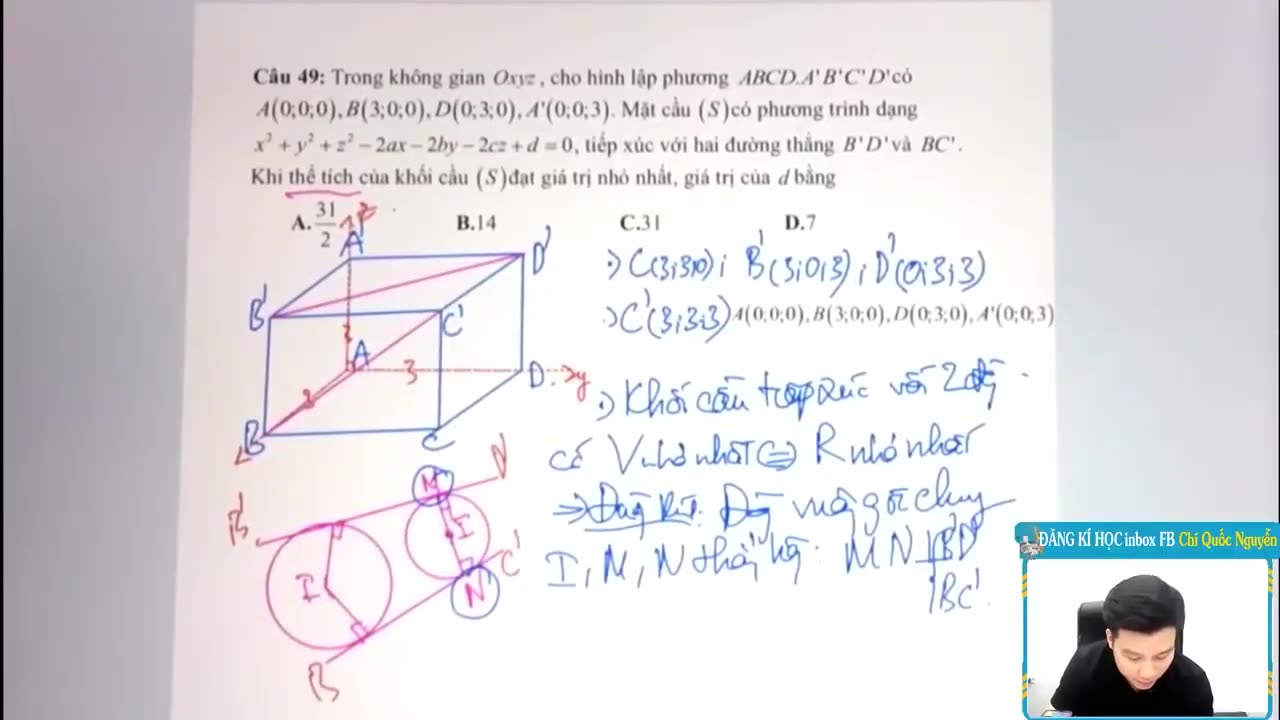 Câu 49: Trong không gian Oxyz, cho hình lập phương ABCD.A'B'C'D' có
A(0;0;0), B(3;0;0), D(0;3;0), A'(0;0;3). Mặt cầu (S) có phương trình dạng
x² + y² + z² − 2ax − 2by − 2cz + d = 0, tiếp xúc với hai đường thẳng B'D' và BC'.
Khi thể tích của khối cầu (S) đạt giá trị nhỏ nhất, giá trị của d bằng
A. 31/2 B. 14 C. 31 D. 7
z
A'
D'
B'
C'
A
3
3
3
D
y
B
C
:) C(3;3;0); B'(3;0;3); D'(0;3;3)
:) C'(3;3;3) A(0;0;0), B(3;0;0), D(0;3;0), A'(0;0;3)
:) Khối cầu tiếp xúc với 2
có V nhỏ nhất ⇔ R nhỏ nhất
⇒ Đg vuông góc chung
I, M, N thẳng hàng: MN ⊥ B'D'
BC'
B'
M
D'
I
I
C'
N
B
ĐĂNG KÍ HỌC inbox FB Chí Quốc Nguyễn